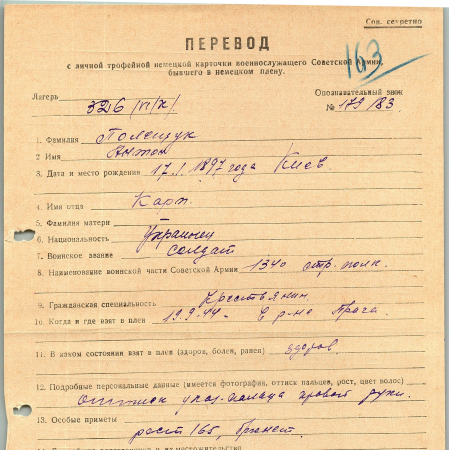 Сов. секретно
ПЕРЕВОД
163
с личной трофейной немецкой карточки военнослужащего Советской Армии,
бывшего в немецком плену.
Лагерь 326 (VI/K)
Опознавательный знак
№ 179183
1. Фамилия Полещук
2 Имя Антон
3. Дата и место рождения 17.1.1897 года Киев.
4. Имя отца Карп.
5. Фамилия матери
6. Национальность Украинец
7. Воинское звание солдат
8. Наименование воинской части Советской Армии 1340 стр. полк.
9. Гражданская специальность Крестьянин
10. Когда и где взят в плен 19.9.44. В р-не Прага.
11. В каком состоянии взят в плен (здоров, болен, ранен) здоров.
12. Подробные персональные данные (имеется фотография, оттиск пальцев, рост, цвет волос)
оттиск указ. пальца правой руки.
13. Особые приметы
рост 165, брюнет.